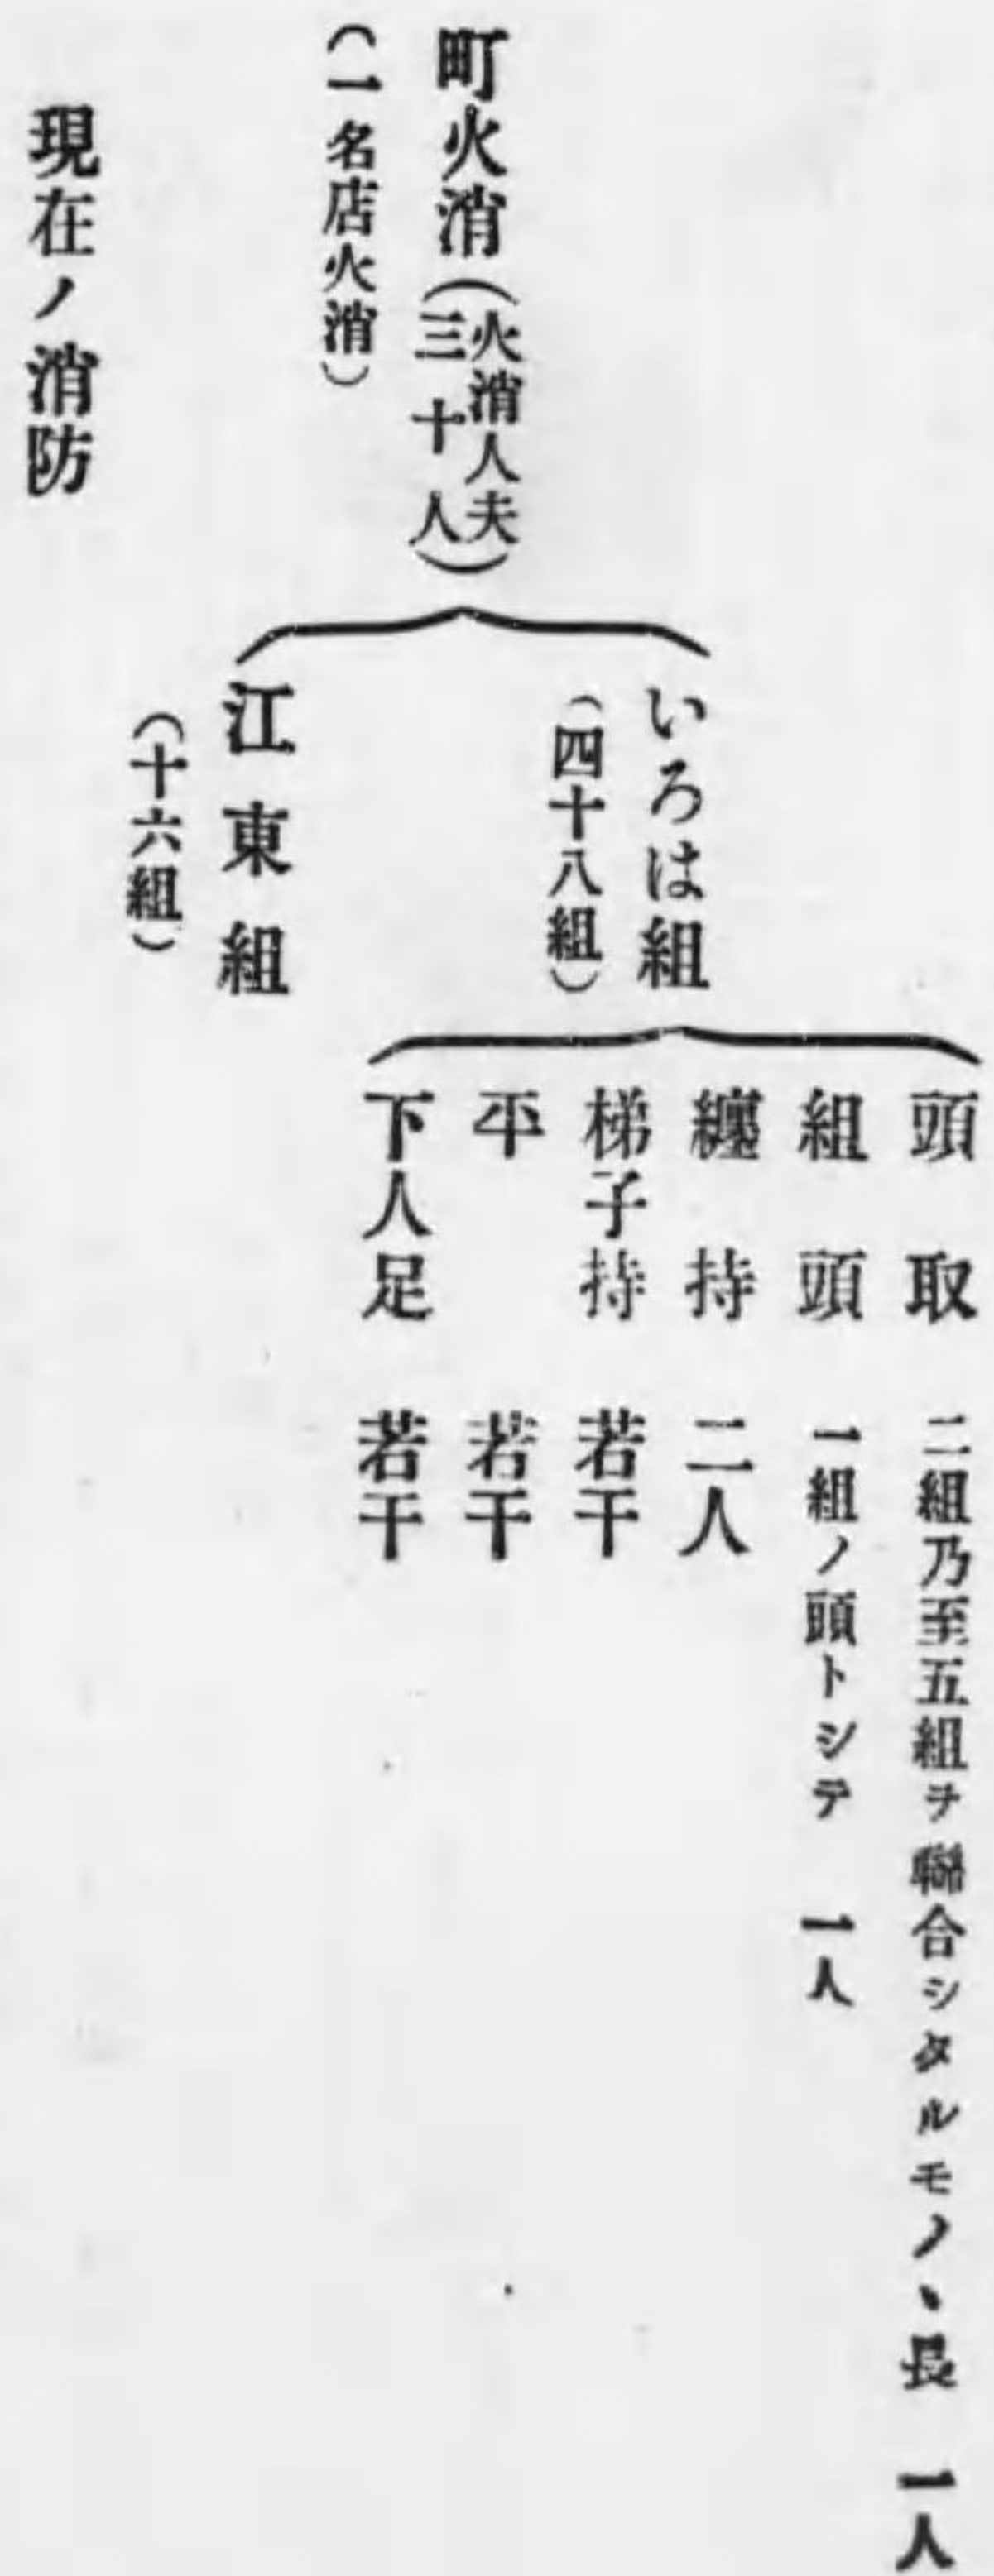 町火消(火消人夫三十人)
(一名店火消)
いろは組
(四十八組)
頭取 二組乃至五組ヲ聯合シタルモノヽ長 一人
組頭 一組ノ頭トシテ 一人
纏持 二人
梯子持 若干
平 若干
下人足 若干
江東組
(十六組)
現在ノ消防